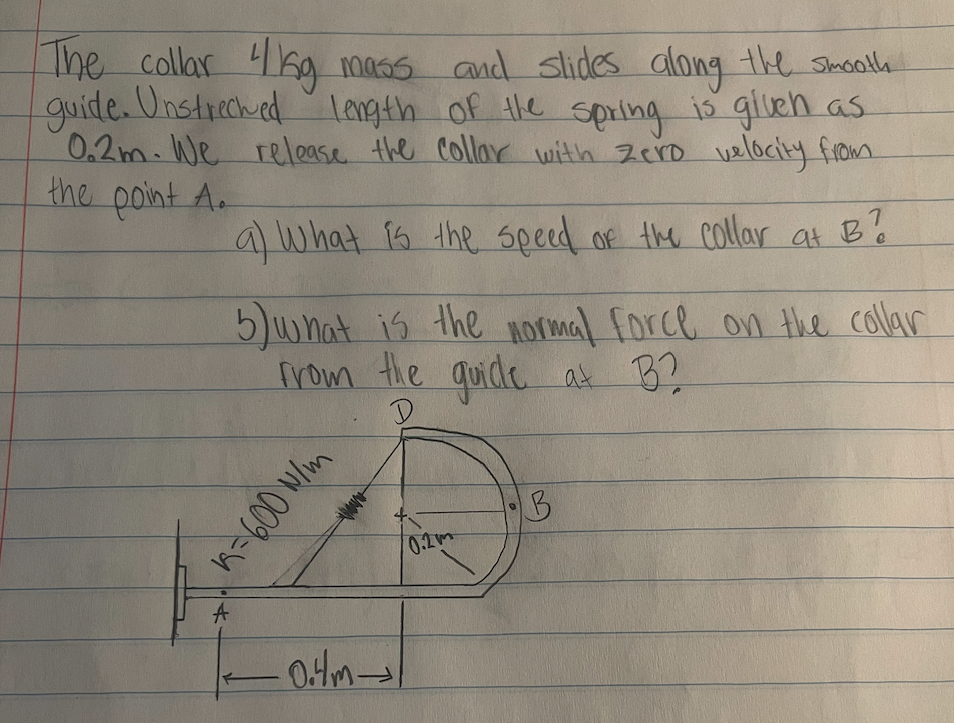 The collar 4kg mass and slides along the smooth
guide. Unstreched length of the spring is given as
0.2m. We release the collar with zero velocity from
the point A.
a) What is the speed of the collar at B?
b) What is the normal force on the collar
from the guide at B?
D
K=600 N/m
B
0.2m
A
0.4m